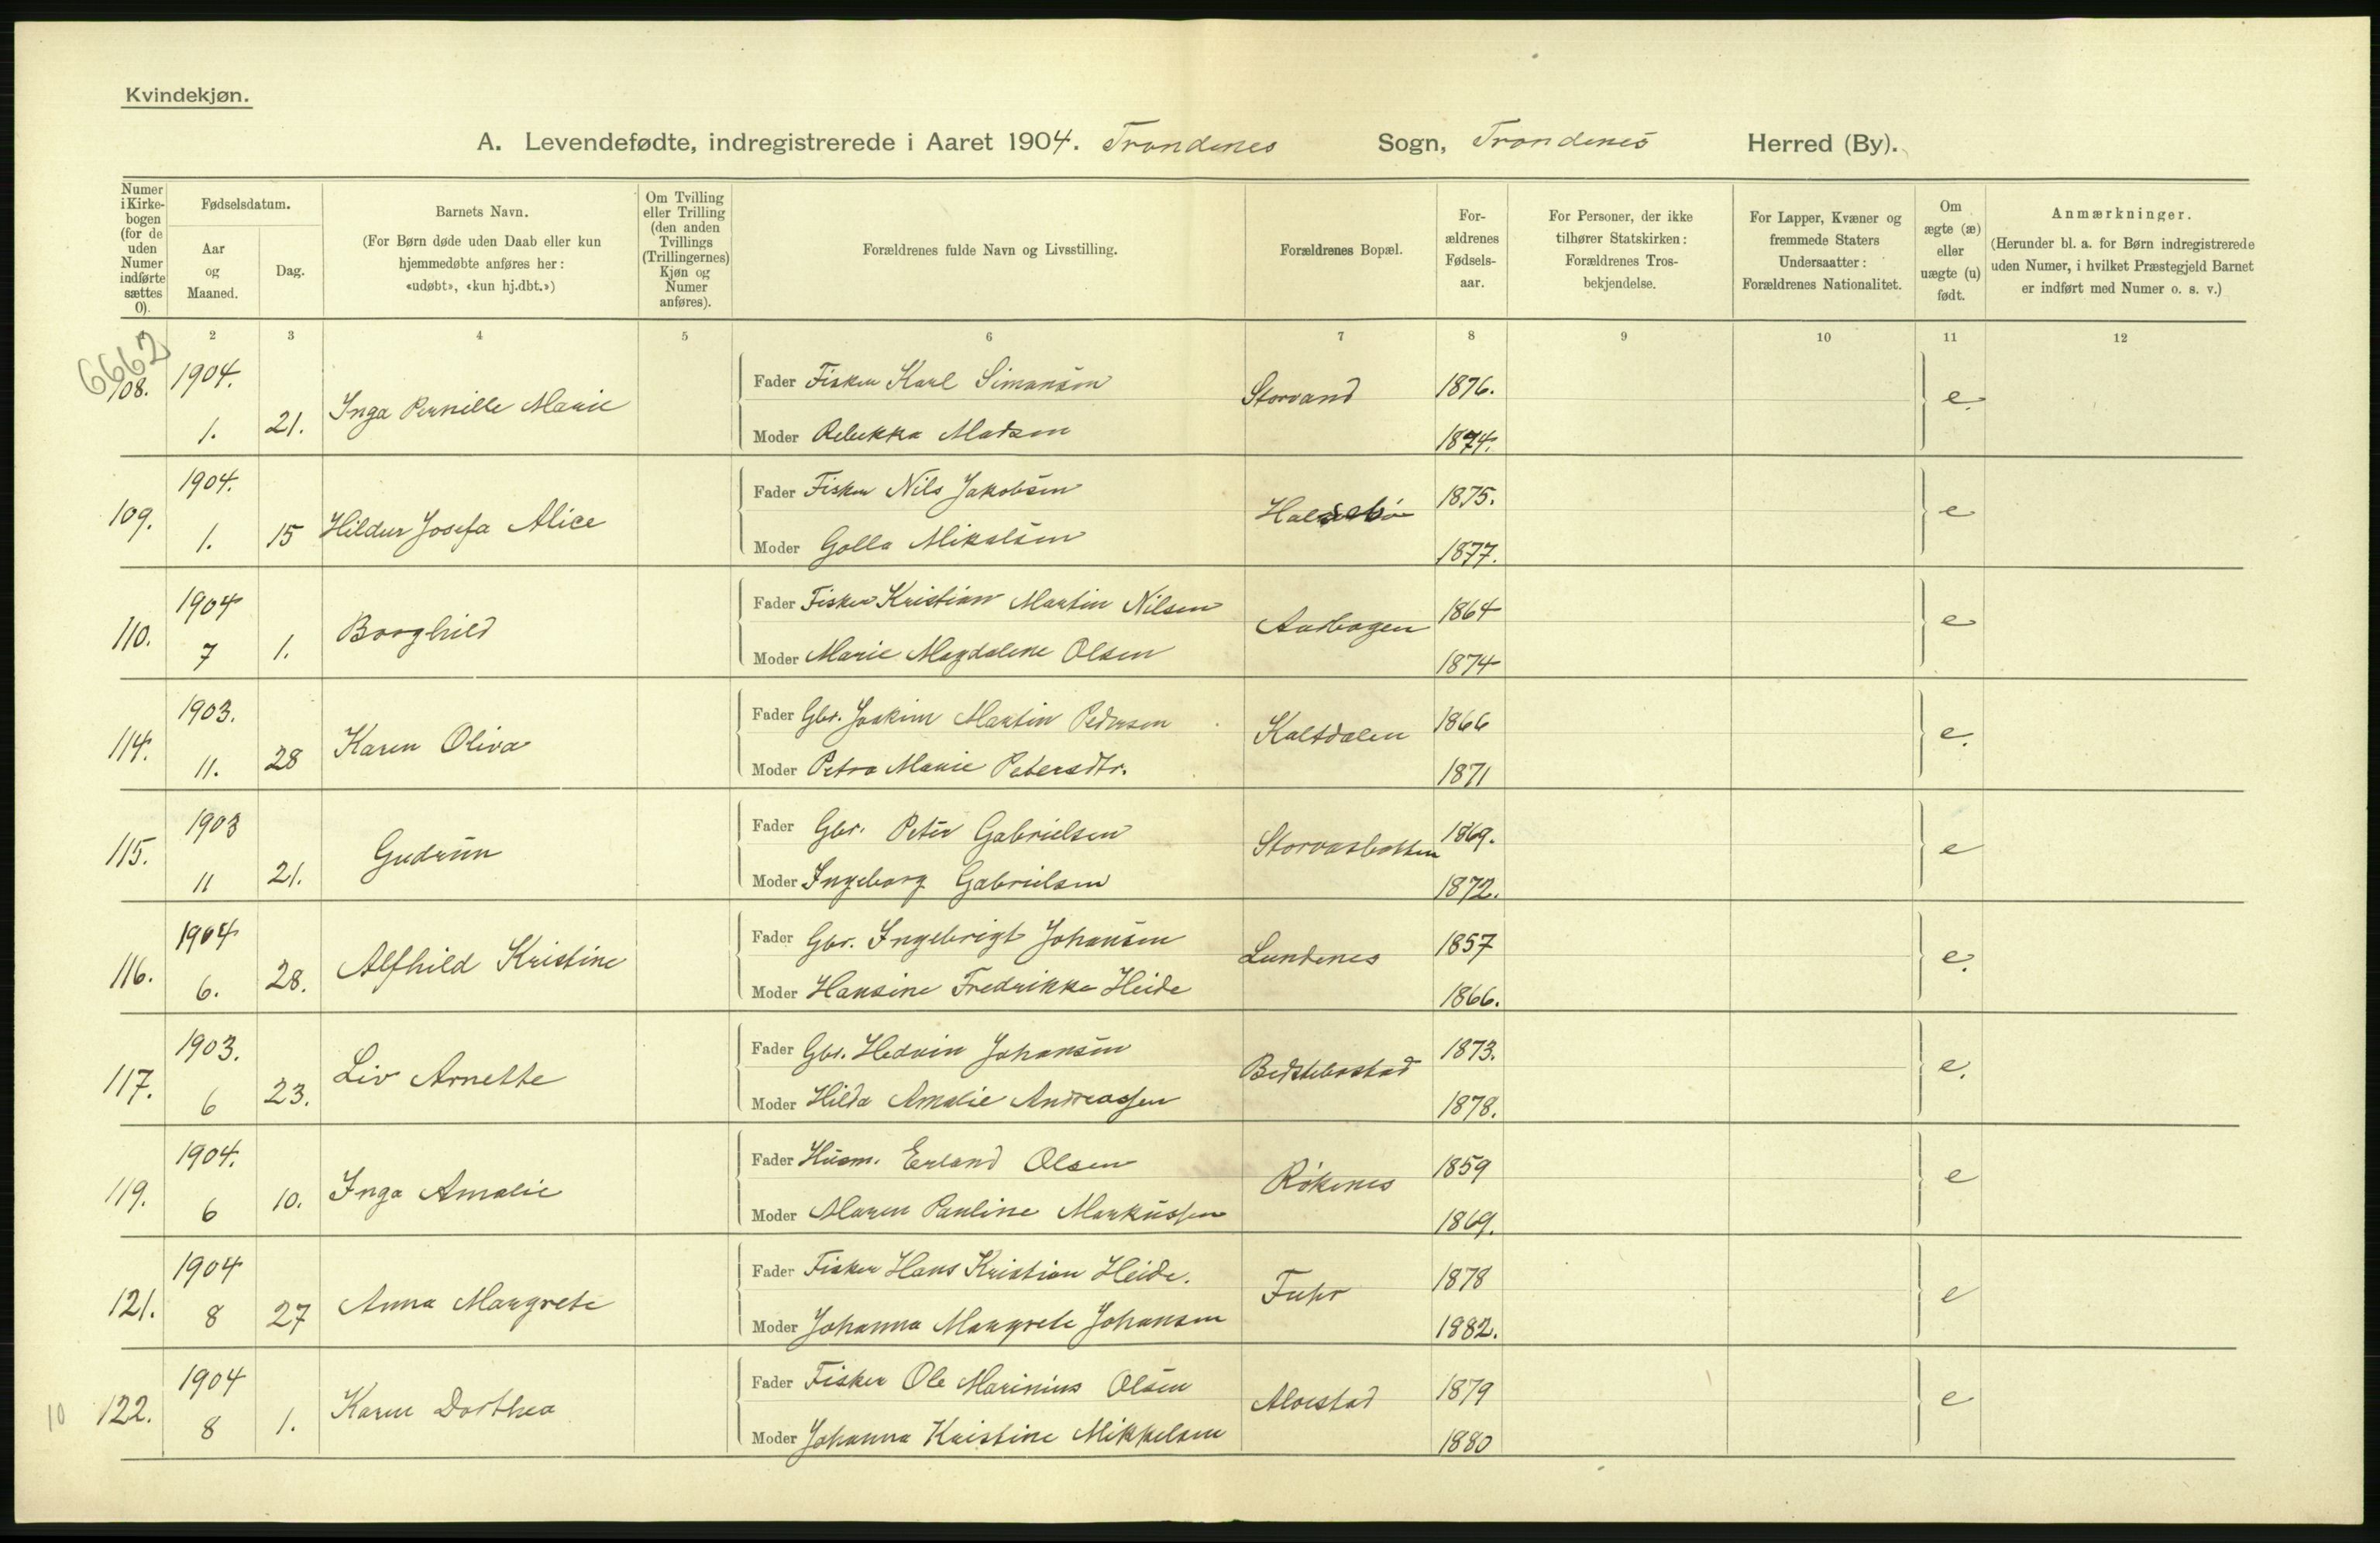 Kvindekjøn.
A. Levendefødte, indregistrerede i Aaret 1904. Trondenes Sogn, Trondenes Herred (By).
Numer i Kirkebogen (for de uden Numer indførte sættes 0).
Fødselsdatum.
Aar og Maaned.
Dag.
Barnets Navn.
(For Børn døde uden Daab eller kun hjemmedøbte anføres her: «udøbt», «kun hj.dbt.»)
Om Tvilling eller Trilling (den anden Tvillings (Trillingernes) Kjøn og Numer anføres).
Forældrenes fulde Navn og Livsstilling.
Forældrenes Bopæl.
Forældrenes Fødselsaar.
For Personer, der ikke tilhører Statskirken: Forældrenes Trosbekjendelse.
For Lapper, Kvæner og fremmede Staters Undersaatter: Forældrenes Nationalitet.
Om ægte (æ) eller uægte (u) født.
Anmærkninger.
(Herunder bl. a. for Børn indregistrerede uden Numer, i hvilket Præstegjeld Barnet er indført med Numer o. s. v.)
2 3 4 5 6 7 8 9 10 11 12
6662
108. 1904. 1. 21. Inga Pernille Marie
Fader Fisker Karl Simonsen Storvand 1876. e.
Moder Rebekka Madsen 1874.
109. 1904. 1. 15 Hildur Josefa Alice
Fader Fisker Nils Jakobsen Halsebø 1875. e
Moder Golla Mikalsen 1877.
110. 1904 7 1. Borghild
Fader Fisker Kristian Martin Nilsen Aasbogen 1864 e
Moder Marie Magdalene Olsen 1874
114. 1903. 11. 28 Karen Oliva
Fader Gbr. Joakim Martin Pedersen Kaltdalen 1866 e.
Moder Petra Marie Petersdtr. 1871
115. 1903 11 21. Gudrun
Fader Gbr. Peter Gabrielsen Storvasbotten 1869. e
Moder Ingeborg Gabrielsen 1872.
116. 1904 6. 28. Alfhild Kristine
Fader Gbr. Ingebrigt Johansen Lundenes 1857 e.
Moder Hansine Fredrikke Heide 1866.
117. 1903. 6 23. Liv Arnette
Fader Gbr. Hedvin Johansen Bedstebostad 1873. e.
Moder Hilda Amalie Andreassen 1878.
119. 1904. 6 10. Inga Amalie
Fader Husm. Erland Olsen Røkenes 1859 e
Moder Maren Pauline Markussen 1869.
121. 1904 8 27 Anna Margrete
Fader Fisker Hans Kristian Heide. Fuhr 1878 e
Moder Johanna Margrete Johansen 1882.
10 122. 1904 8 1. Karen Dorthea
Fader Fisker Ole Marinius Olsen Alvestad 1879 e
Moder Johanna Kristine Mikkelsen 1880